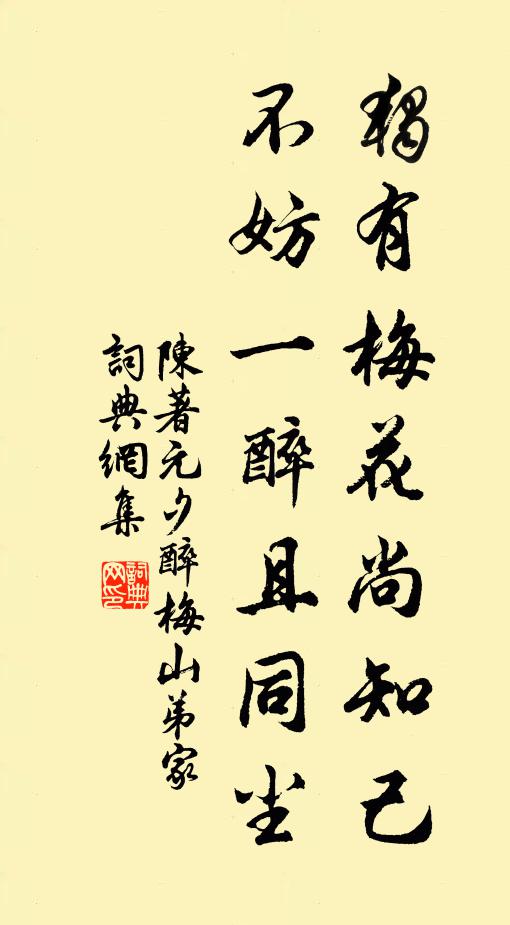 獨有梅花尚知己
不妨一醉且同坐
陳著元夕醉梅山弟家
詞典網集
詞典
网印